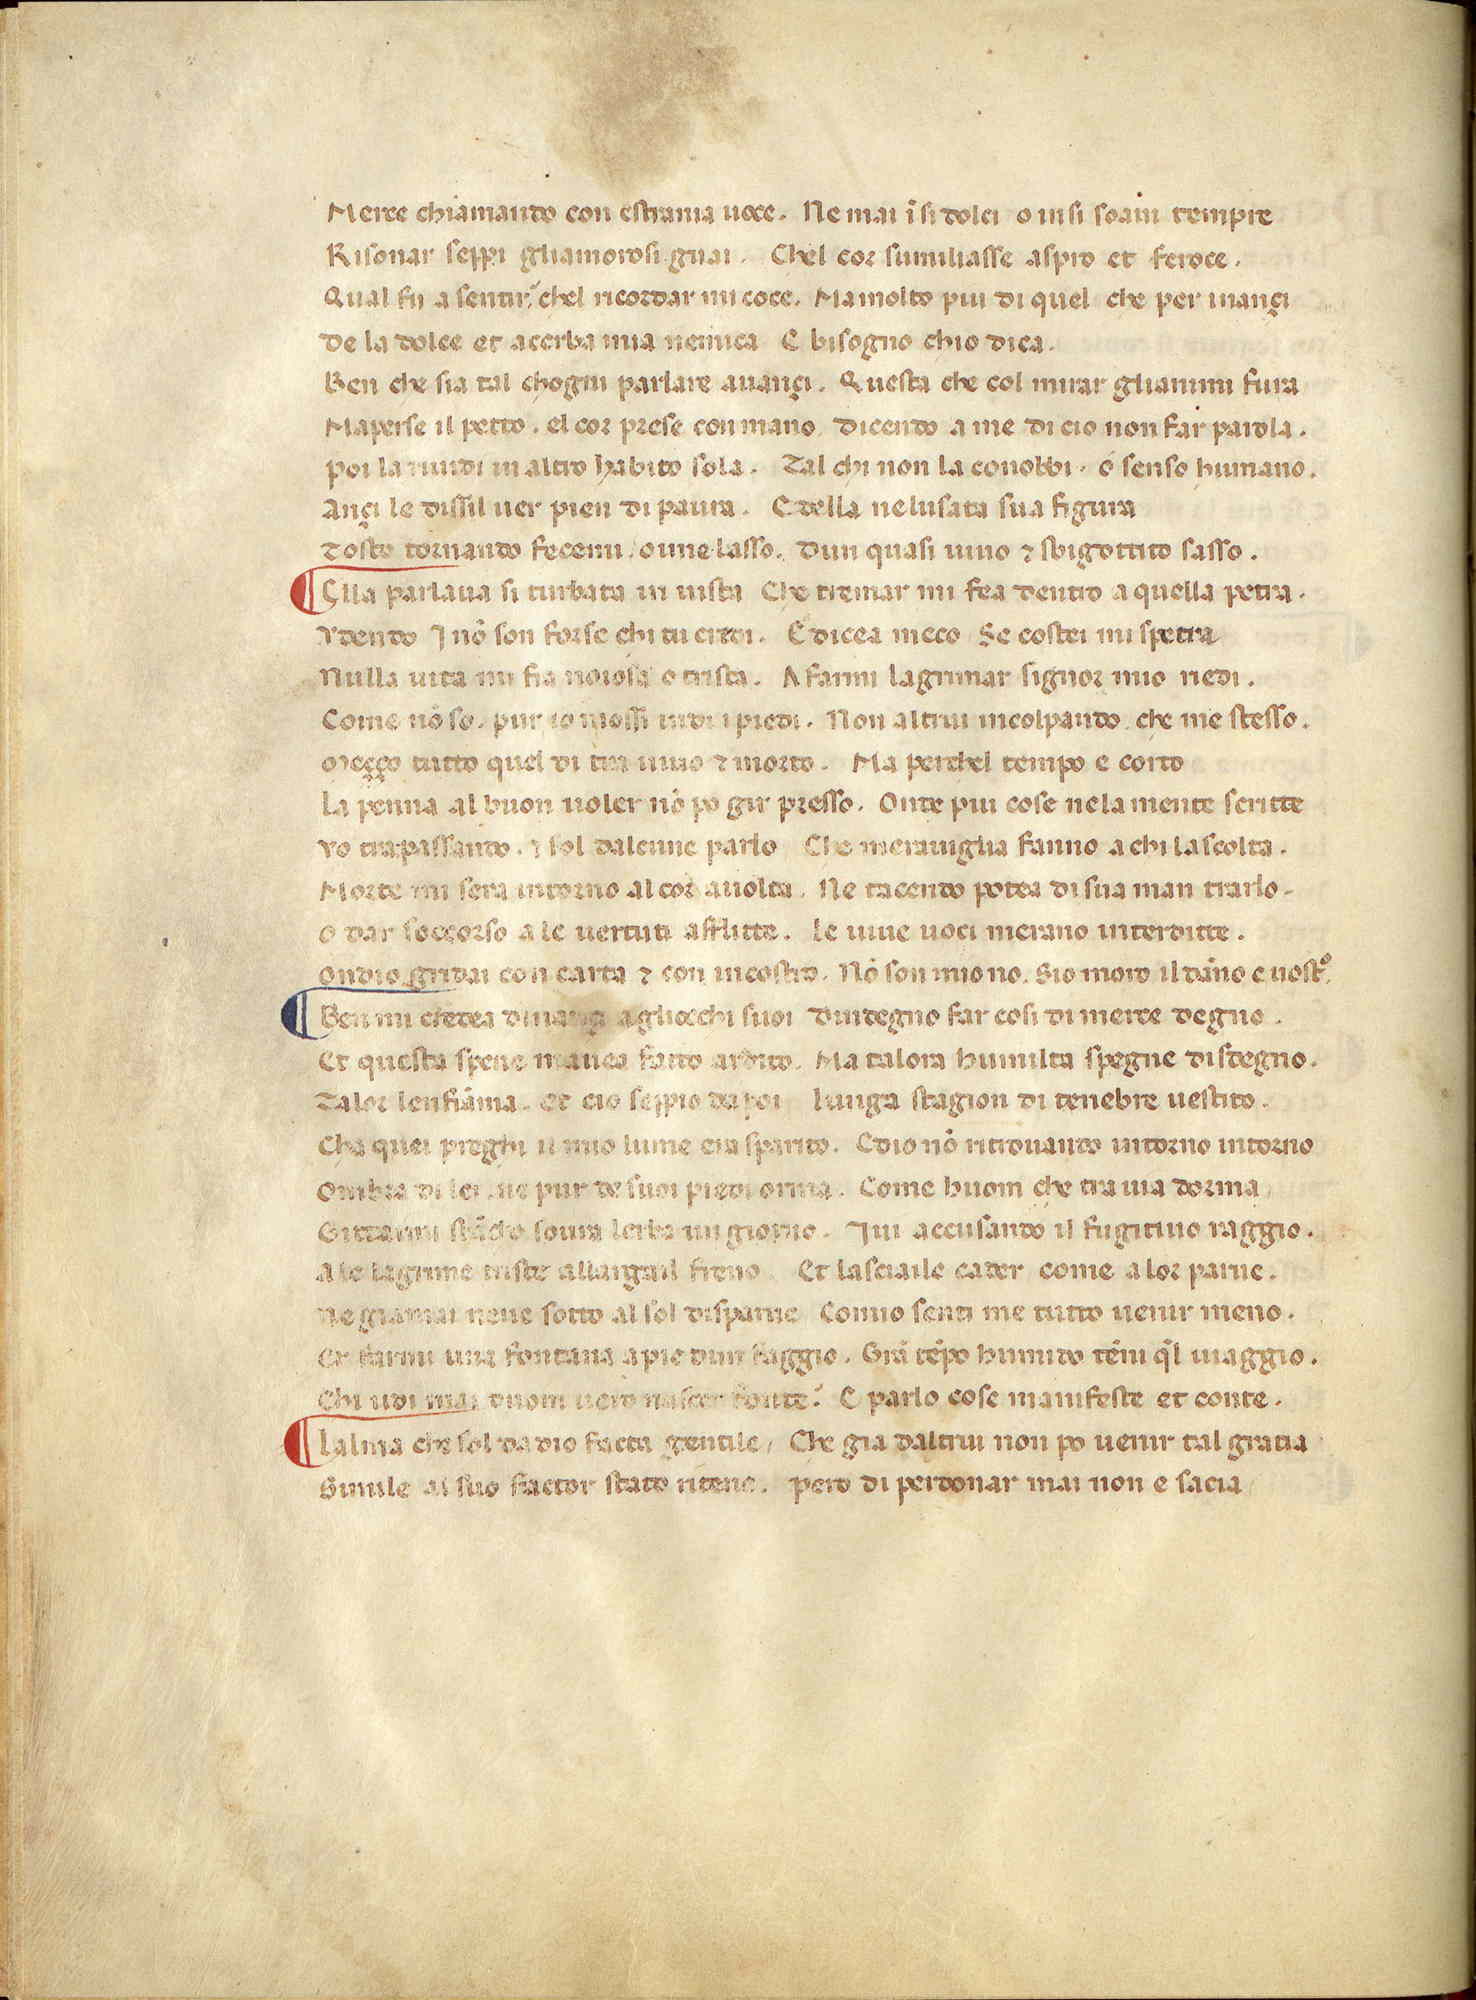 Merce chiamando con estrania uoce. Ne mai ĩ si dolci o in si soaui tempre
Risonar seppi gliamorosi guai. Chel cor sumiliasse aspro et feroce.
Qual fu a sentir? chel ricordar mi coce. Ma molto piu di quel che per inançi
De la dolce et acerba mia nemica E bisogno chio dica.
Ben che sia tal chogni parlare auançi. Questa che col mirar glianimi fura
Maperse il petto. el cor prese con mano dicendo a me di cio non far parola.
Poi la riuidi in altro habito sola. Tal chi non la conobbi. o senso humano.
Ançi le dissil uer pien di paura. Edella nelusata sua figura
Tosto tornando fecemi. oime lasso. Dun quasi uiuo ⁊ sbigottito sasso.
¶ Ella parlaua si turbata in uista Che tremar mi fea dentro a quella petra.
Vdendo I nõ son forse chi tu credi. E dicea meco Se costei mi spetra
Nulla uita mi fia noiosa o trista. A farmi lagrimar signor mio riedi.
Come nõ so. pur io mossi indi i piedi. Non altrui incolpando. che me stesso.
Meçço tutto quel di tra uiuo ⁊ morto. Ma perchel tempo e corto
La penna al buon uoler nõ po gir presso. Onde piu cose nela mente scritte
Vo trapassando. ⁊ sol dalcune parlo Che merauiglia fanno a chi lascolta.
Morte mi sera intorno al cor auolta. Ne tacendo potea di sua man trarlo.
O dar soccorso a le uertuti afflitte. Le uiue uoci merano interditte.
Ondio gridai con carta ⁊ con incostro. Nõ son mio no. Sio moro il dãno e uostrᵒ.
¶ Ben mi credea dinançi agliocchi suoi Dindegno far cosi di merce degno.
Et questa spene mauea fatto ardito. Ma talora humilta spegne disdegno.
Talor lenfiãma. et cio seppio dapoi Lunga stagion di tenebre uestito.
Cha quei preghi il mio lume era sparito. Edio nõ ritrouando intorno intorno
Ombra di lei. ne pur de suoi piedi orma. Come huom che tra uia dorma
Gittaimi stãcho soura lerba un giorno. Iui accusando il fugitiuo raggio.
A le lagrime triste allargail freno. Et lasciaile cader come a lor parue.
Ne giamai neue sotto al sol disparue Comio senti me tutto uenir meno.
Et farmi una fontana a pie dun faggio. Grã tẽpo humido tẽni ql uiaggio.
Chi udi mai duom uero nascer fonte? E parlo cose manifeste et conte.
¶ Lalma che sol da dio facta gentile, Che gia daltrui non po uenir tal gratia
Simile al suo factor stato ritene. Pero di perdonar mai non e sacia